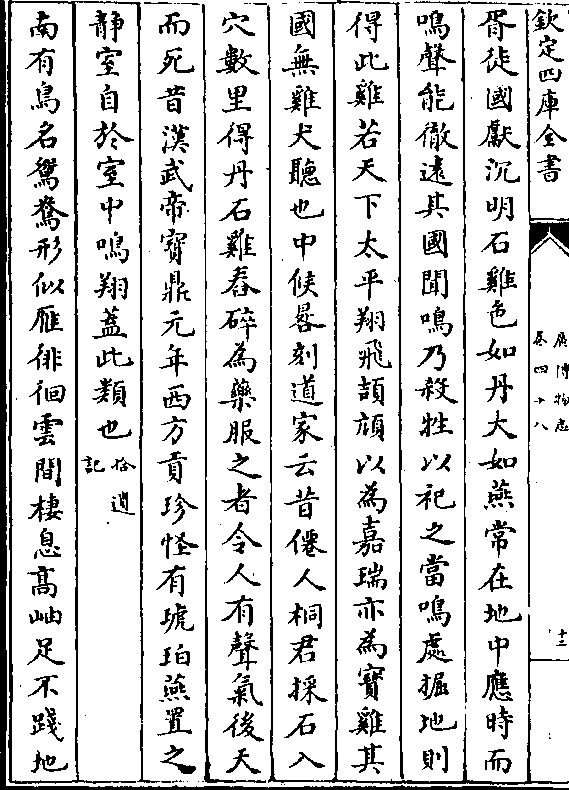 欽定四庫全書
廣博物志
卷四十八
十三
胥徒國獻沉明石雞色如丹大如燕常在地中應時而
鳴聲能徹遠其國聞鳴乃殺牲以祀之當鳴處掘地則
得此雞若天下太平翔飛頡頏以為嘉瑞亦為寶雞其
國無雞犬聽也中候晷刻道家云昔僊人桐君採石入
穴數里得丹石雞舂碎為藥服之者令人有聲氣後天
而死昔漢武帝寶鼎元年西方貢珍怪有琥珀燕置之
静室自於室中鳴翔蓋此類也拾遺記
南有鳥名鴛鴦形似雁徘徊雲間棲息髙岫足不踐地